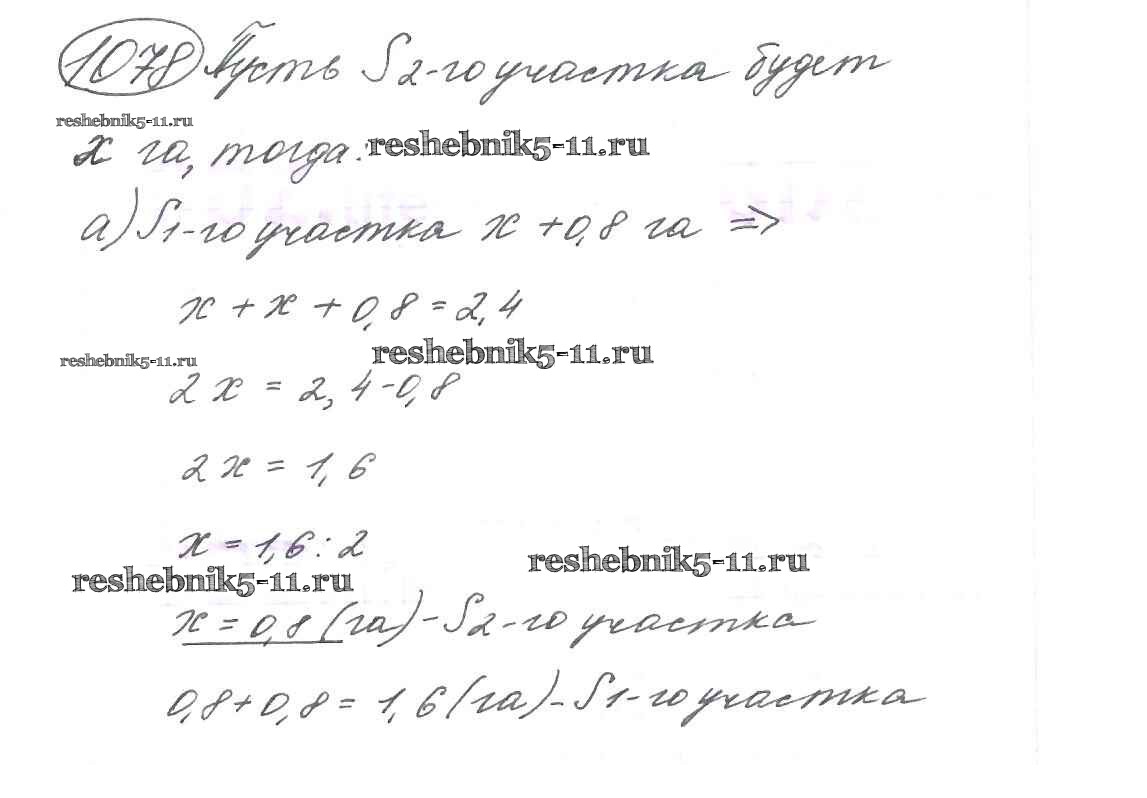 1078 Пусть S 2-го участка будет
reshebnik5-11.ru
x га, тогда: reshebnik5-11.ru
а) S 1-го участка x + 0,8 га =>
x + x + 0,8 = 2,4
reshebnik5-11.ru reshebnik5-11.ru
2x = 2,4-0,8
2x = 1,6
x = 1,6 : 2
reshebnik5-11.ru reshebnik5-11.ru
x = 0,8 (га) - S 2-го участка
0,8+0,8 = 1,6 (га) - S 1-го участка